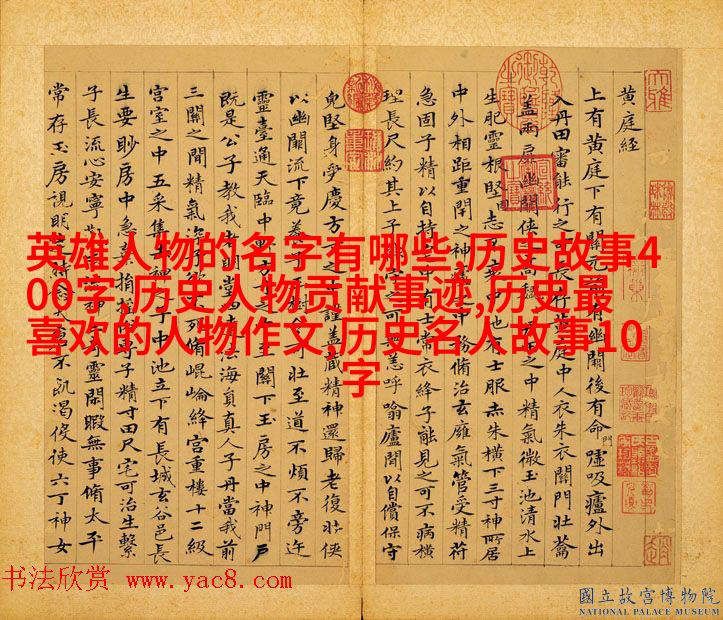 黄庭經
上有黄庭下有關元前有幽闕後有命門嘘吸廬外出
入丹田審能行之可長存黄庭中人衣朱衣關門壯蘥
蓋兩扉幽闕俠之高巍丹田之中精氣微玉池清水上
生肥靈根堅志不衰中池有士服赤朱横下三寸神所居
中外相距重閉之神廬之中務脩治玄廱氣管受精符
急固子精以自持宅中有士常衣絳子能見之可不病横
理長尺約其上子能守之可無恙呼噏廬間以自償保守
兔堅身受慶方寸之中謹蓋藏精神還歸老復壯俠
以幽闕流下竟養子玉樹令可壯至道不煩不旁迕
靈臺通天臨中野方寸之中至關下玉房之中神門戶
既是公子教我者明堂四達法海員真人子丹當我前
三關之間精氣深子欲不死脩崐崘絳宫重樓十二級
宫室之中五采集赤神之子中池立下有長城玄谷邑長
生要眇房中急棄捐子精寸田尺宅可治生繫
子長流心安寧觀志流神三奇靈閒暇無事脩太平
常存玉房視明達時不飢渴役使六丁神女
英雄人物的名字有哪些,历史故事4
00字,历史人物贡献事迹,历史最
喜欢的人物作文,历史名人故事10
字
书法欣赏 www.yac8.com
國立故宫博物院
NATIONAL PALACE MUSEUM